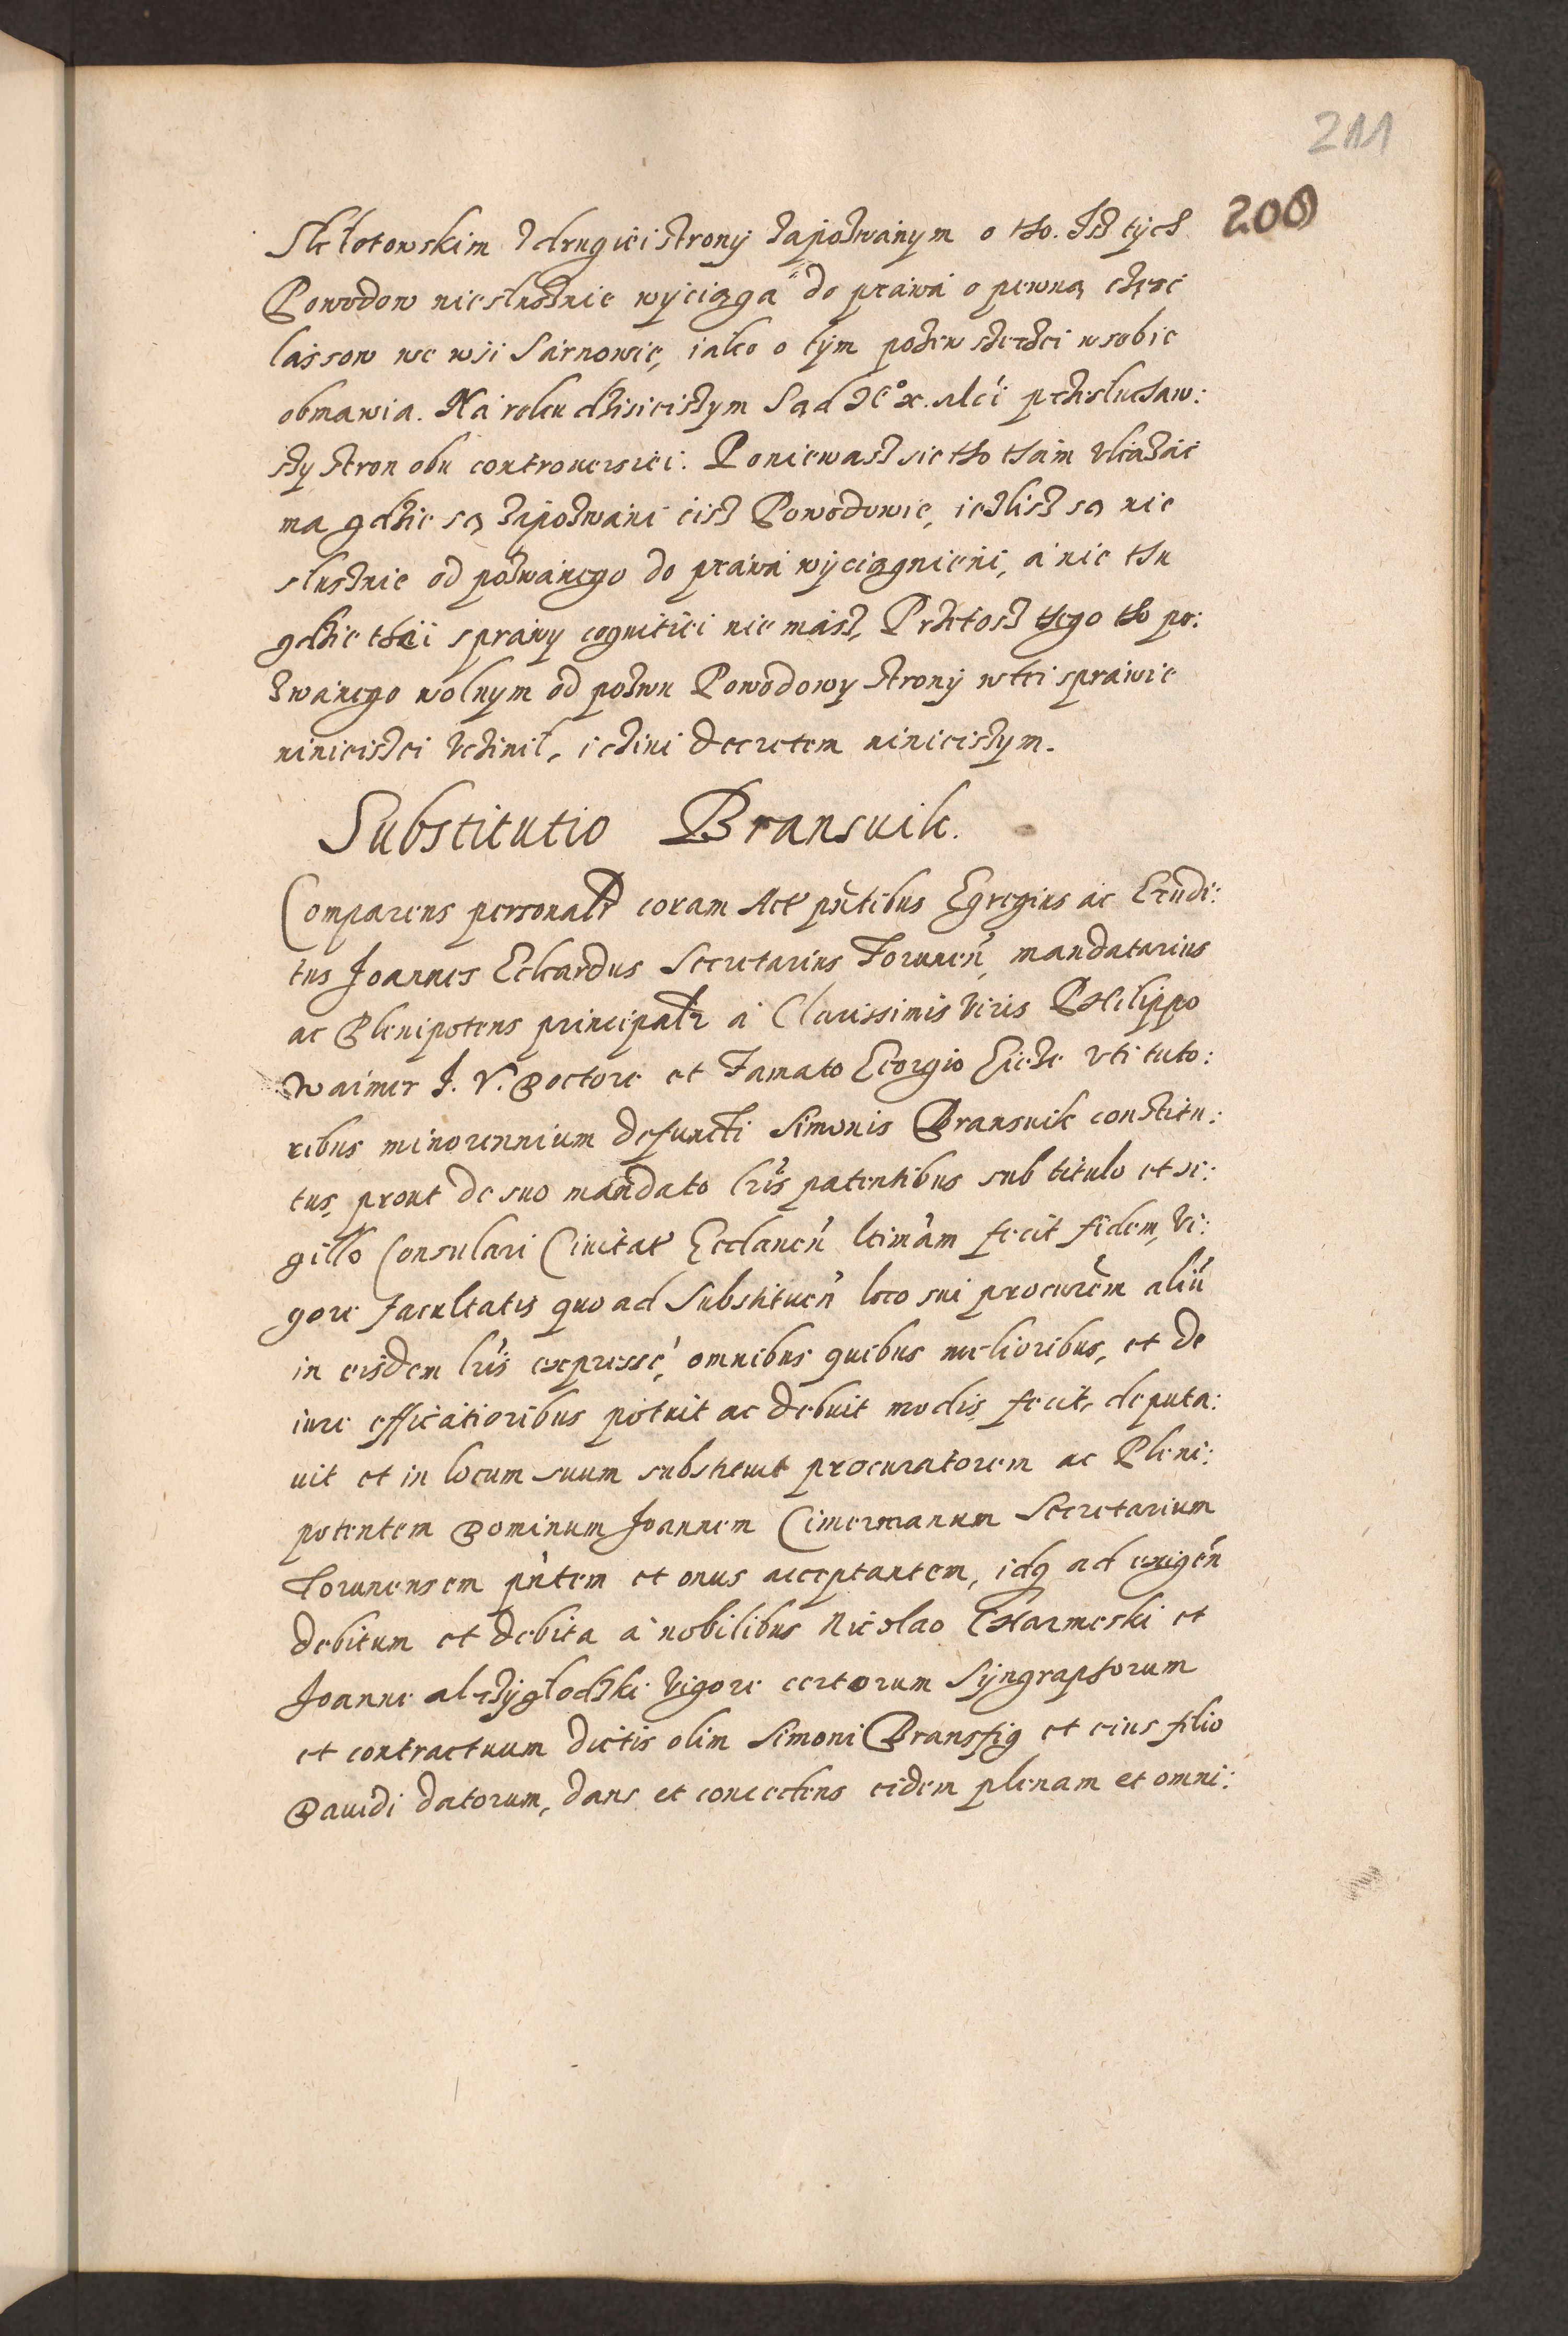 211
200
Sklotowskim z drugiei strony zapozwanym o tho. Isz tych
Powodow niesłusznie wyciąga do prawa o pewną część
lassow we wsi Sarnowie, iako o tym pozew szerzei w sobie
obmawia. Na roku dzisieiszym Sąd przesłuchaw:
szy stron obu controuersiei. Poniewasz sie tho tham vkazać
ma gdzie są zapozwani cisz Powodowie, ieżlisz są nie
słusznie od pozwanego do prawa wyciągnieni, a nie thu
gdzie thei sprawy cognitiei nie masz, Przetosz tego tho po:
zwanego wolnym od pozwu Powodowy strony w tei sprawie
ninieiszei vczinił, i czini decretem ninieiszym.
Substitutio Bransuik.
Comparens personalr coram Act pñtibus Egregius ac Erudi:
tus Joannes Eckardus Secretarius Torunen̄, mandatarius
ac Plenipotens principalr a Clarissimis Viris Philippo
Waimer J. V. Doctore et Famato Georgio Giese vti tuto:
ribus minorennium defuncti Simonis Bransuik constitu:
tus, prout de suo mandato lr̃is patentibus sub titulo et si:
gillo Consulari Ciuitat Gedanen̄ ltimam fecit fidem, Vi:
gore facultatis quoad Substituen̄ loco sui procurem̄ aliū
in eisdem lr̃is expressé, omnibus quibus melioribus, et de
iure efficatioribus potuit ac debuit modis fecit, deputa:
uit et in locum suum substituit procuratorem ac Pleni:
potentem Dominum Joannem Cimermanum Secretarium
Torunensem pñtem et onus acceptantem, idq ad exigen̄
debitum et debita a nobilibus Nicolao Charmeski et
Joanne alrzygłodzki Vigore certorum Syngraphorum
et contractuum dictis olim Simoni Bransfig et eius filio
Dauidi datorum, dans et concedens eidem plenam et omni: